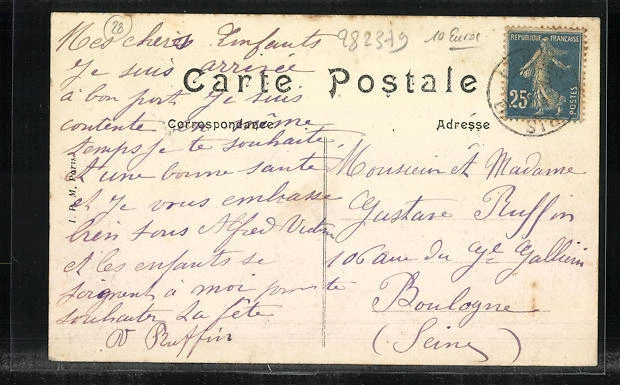 28
982379
10 Euros
Mes chers Enfants
Je suis arrivée
à bon port Je suis
contente même
temps je te souhaite
une bonne santé
et Je vous embrasse
bien tous Alfred
et les enfants se
à moi pour te
souhaiter La fête
Ruffin
Carte Postale
Correspondance
Adresse
RÉPUBLIQUE FRANÇAISE
25c
POSTES
Monsieur et Madame
Gustave Ruffin
106 du Gallieni
Boulogne
(Seine)
Paris